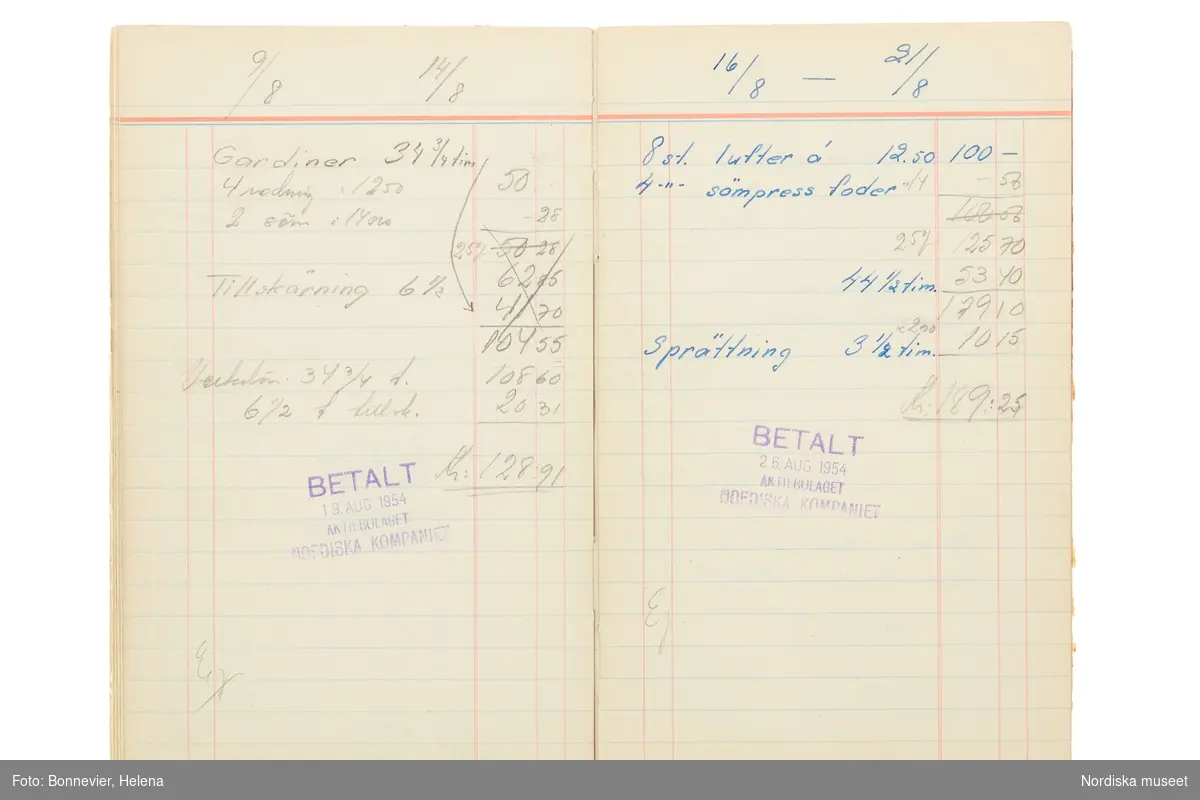 9/8 14/8
Gardiner 34 3/4 tim
4 vadning : 1250 50
2 söm : 14 - 28
25% 50 28
62 85
Tillskärning 6 1/2
41 70
104 55
34 3/4 t. 108 60
6 1/2 t tillsk. 20 31
Kr: 128:91
BETALT
19. AUG 1954
AKTIEBOLAGET
NORDISKA KOMPANIET
16/8 — 21/8
8 st. lufter á 12.50 100 -
4 -"- sömpress foder -14 - 56
100 56
25% 125 70
44 1/2 tim. 53 40
179 10
× 290
Sprättning 3 1/2 tim. 10 15
Kr: 189:25
BETALT
26. AUG 1954
AKTIEBOLAGET
NORDISKA KOMPANIET
Foto: Bonnevier, Helena
Nordiska museet